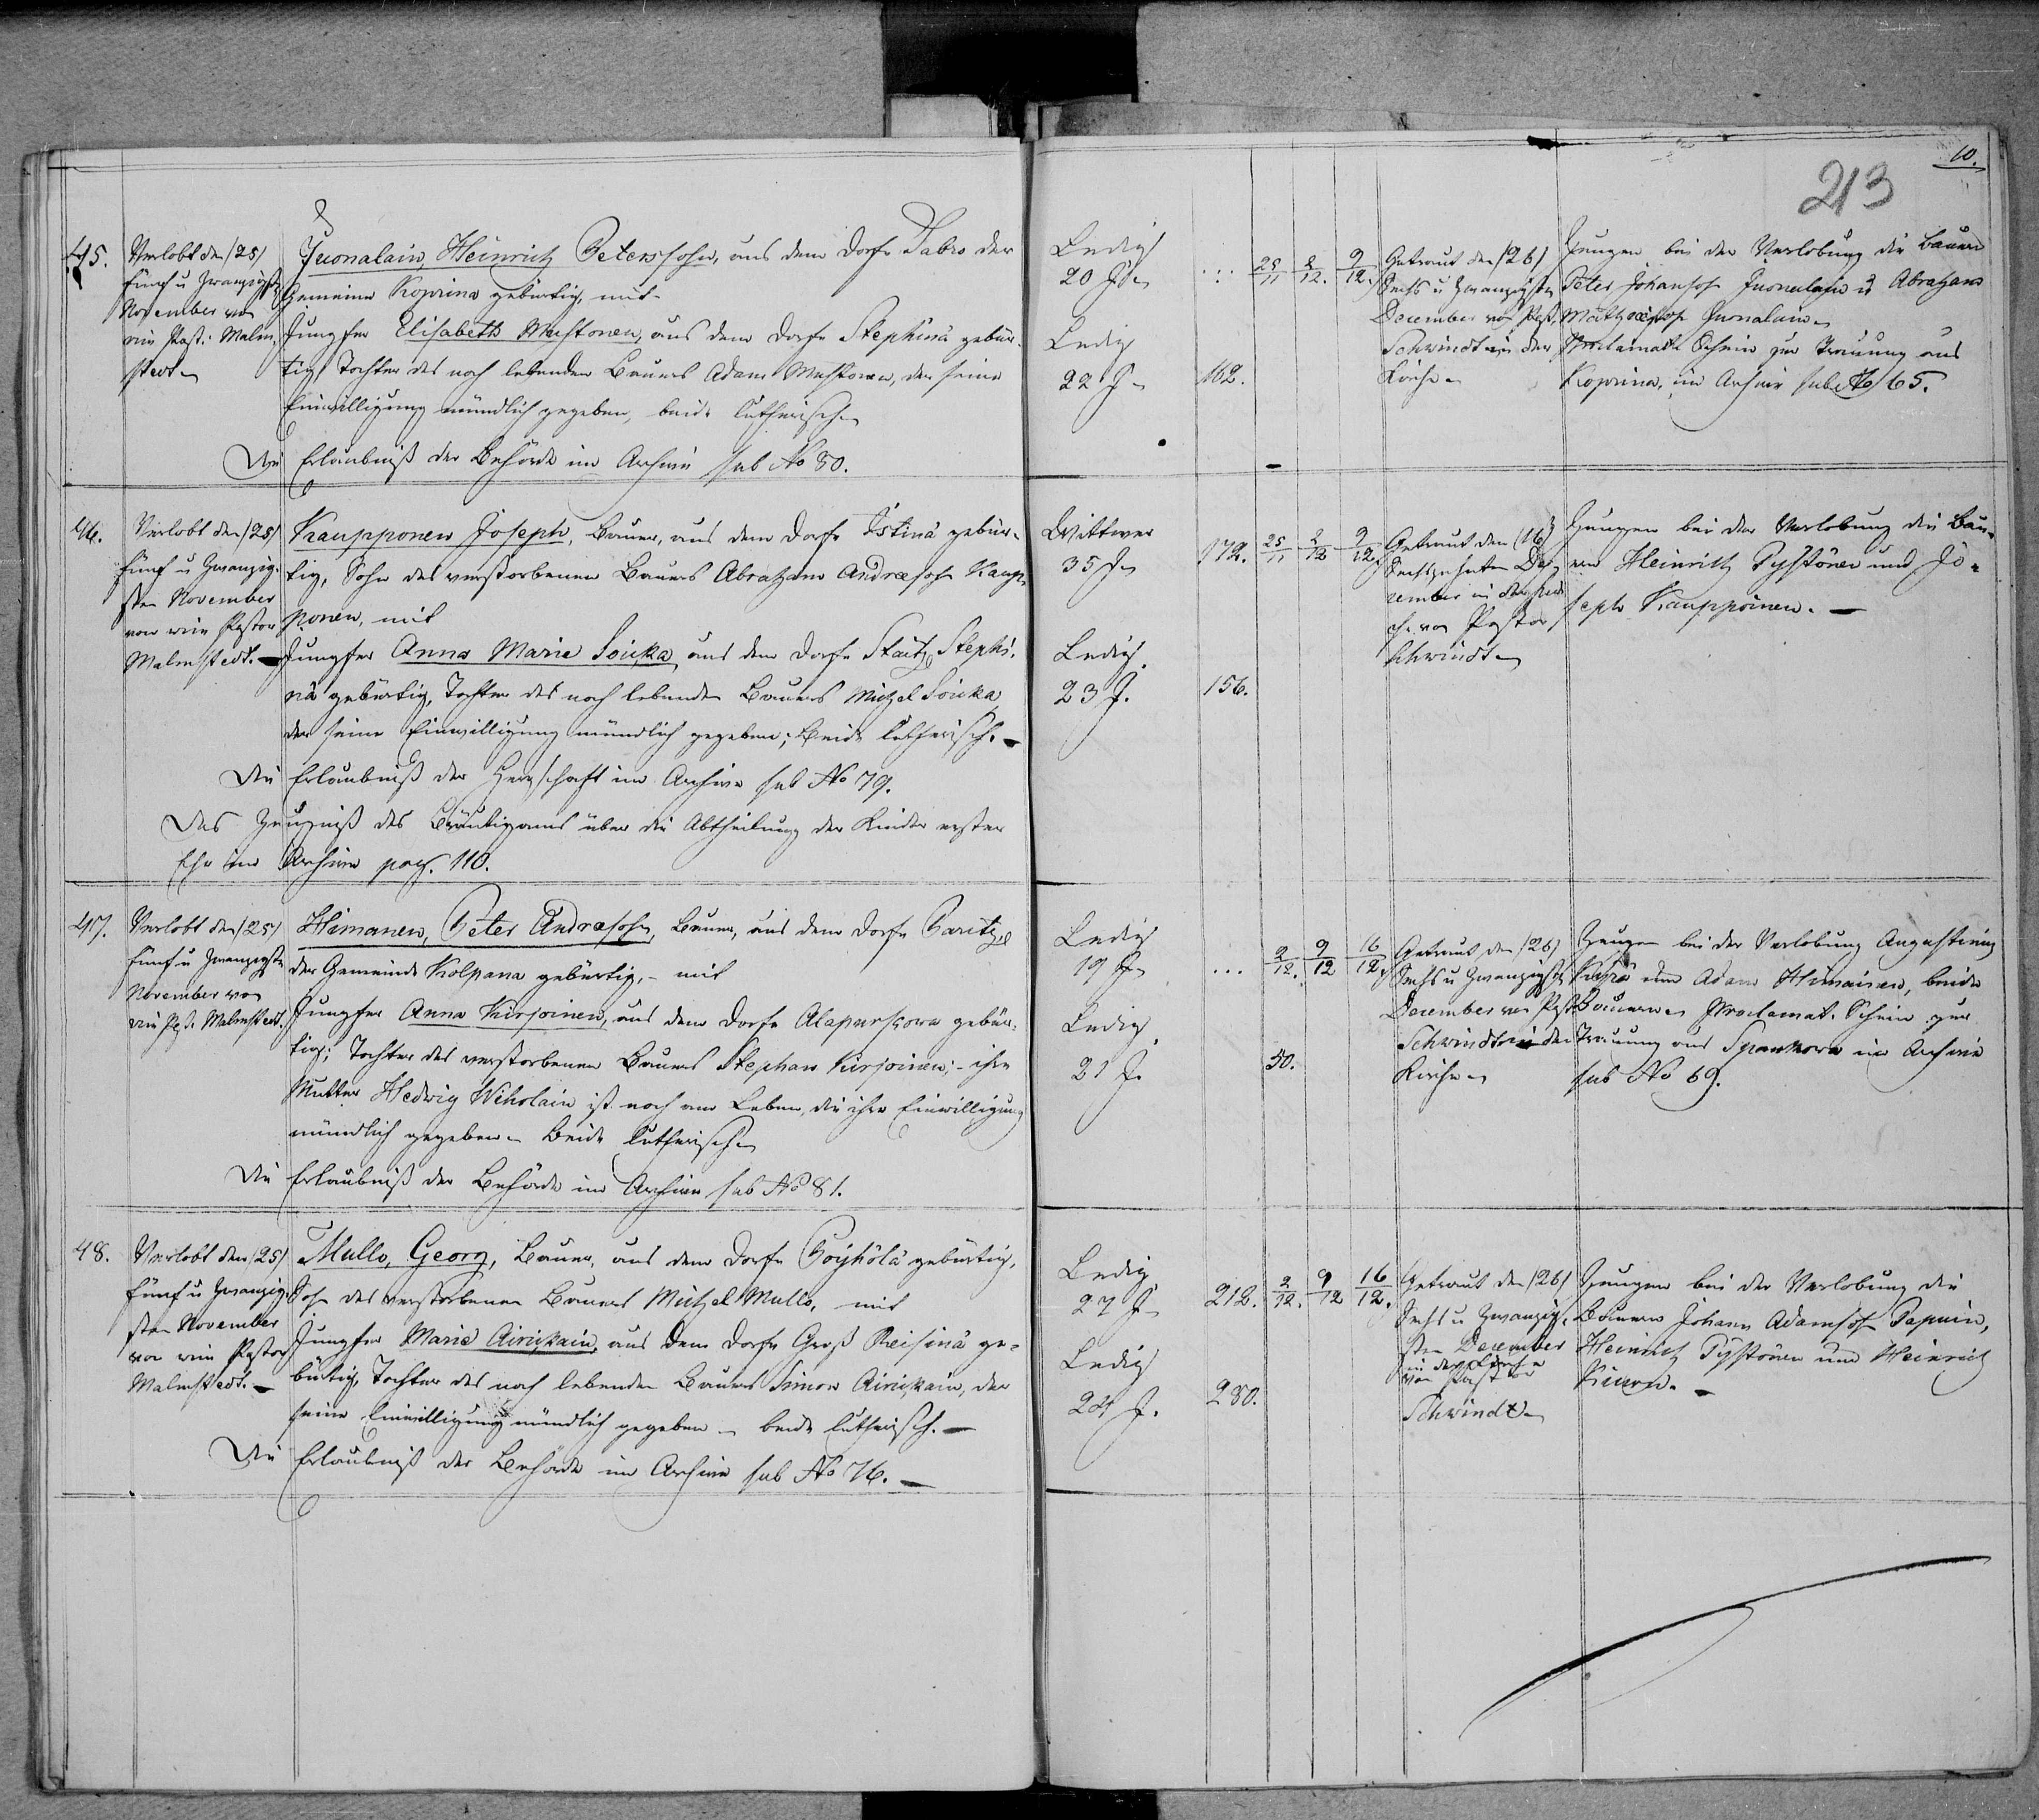 10.
213
45.
Verlobt den (25)
fünf u zwanzigsten
November von
vic. Past: Malm
stedt.
Juonalain, Heinrich Peterssohn, aus dem Dorfe Sabro der
Gemeine Koprina gebürtig, mit
Jungfer Elisabeth Mustonen, aus dem Dorfe Stephinä gebür-
tig, Tochter des noch lebenden Bauers Adam Mustonen, der seine
Einwilligung mündlich gegeben, beide lutherisch.
Die Erlaubniß der Behörde im Archiv sub No 80.
Ledig
20 J.
Ledig
22 J.
...
162.
25/11 2/12. 9/12.
Getraut den (26)
Sechs u zwanzigsten
December von Past.
Schwindt in der
Kirche
Zeugen bei der Verlobung die Bauern
Peter Johansoh Juonalain u Abraham
Juonalain
Proclamat. Schein zur Trauung aus
Koprina, im Archiv sub No 65.
46.
Verlobt den (25)
fünf u zwanzig-
sten November
von vic. Pastor
Malmstedt.
Kaupponen Joseph, Bauer, aus dem Dorfe Istinä gebür-
tig, Sohn des verstorbenen Bauers Abraham Andreasohn Kaup-
ponen, mit
Jungfer Anna Marie Soicka, aus dem Dorfe Staitz Stephi-
nä gebürtig, Tochter des noch lebenden Bauers Michel Soicka
der seine Einwilligung mündlich gegeben; Beide lutherisch.
Die Erlaubniß der Herrschaft im Archiv sub No 79.
Das Zeugniß des Bräutigams über die Abtheilung der Kinder erster
Ehe im Archive pag. 110.
Wittwer
35 J.
Ledig.
23 J.
172.
156.
25/11 2/12 9/12.
Getraut den (16)
Sechszehnten De-
zember in der Kir-
che von Pastor
Schwindt
Zeugen bei der Verlobung die Bau-
ern Heinrich Pystönen und Jo-
seph Kauppoinen.
47.
Verlobt den (25)
fünf u zwanzigsten
November von
vic. Past. Malmstedt.
Himanen, Peter Andreasohn, Bauer, aus dem Dorfe Paritz
der Gemeinde Kolpana gebürtig, mit
Jungfer Anna Kirjoinen, aus dem Dorfe Alapurskowa gebür-
tig; Tochter des verstorbenen Bauers Stephan Kirjoinen; - ihre
Mutter Hedwig Wiholain ist noch am Leben, die ihre Einwilligung
mündlich gegeben. Beide lutherisch.
Die Erlaubniß der Behörde im Archive sub No 81.
Ledig
19 J.
Ledig.
21 J.
...
50.
2/12. 9/12 16/12.
Getraut den (26)
Sechs u zwanzigsten
December von Past.
Schwindt in der
Kirche
Zeugen bei der Verlobung Augustinus
und Adam Himainen, beide
Bauern. Proclamat. Schein zur
Trauung aus Spankowa im Archive
sub No 69.
48.
Verlobt den (25)
fünf u zwanzig-
sten November
von vic. Pastor
Malmstedt.
Mullo, Georg, Bauer, aus dem Dorfe Pöyhölä gebürtig,
Sohn des verstorbenen Bauers Michel Mullo, mit
Jungfer Marie Airickain, aus dem Dorfe Groß Reisinä ge-
bürtig, Tochter des noch lebenden Bauers Simon Airickain, der
seine Einwilligung mündlich gegeben - beide lutherisch.
Die Erlaubniß der Behörde im Archive sub No 76.
Ledig
27 J.
Ledig
24 J.
212.
280.
2/12. 9/12 16/12.
Getraut den (26)
Sechs u zwanzig-
sten December
in der Kirche
von Pastor
Schwindt
Zeugen bei der Verlobung die
Bauern Johann Adamsohn Papuin,
Heinrich Pystönen und Heinrich